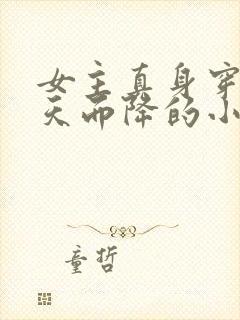 女主真身穿
天而降的小
童哲